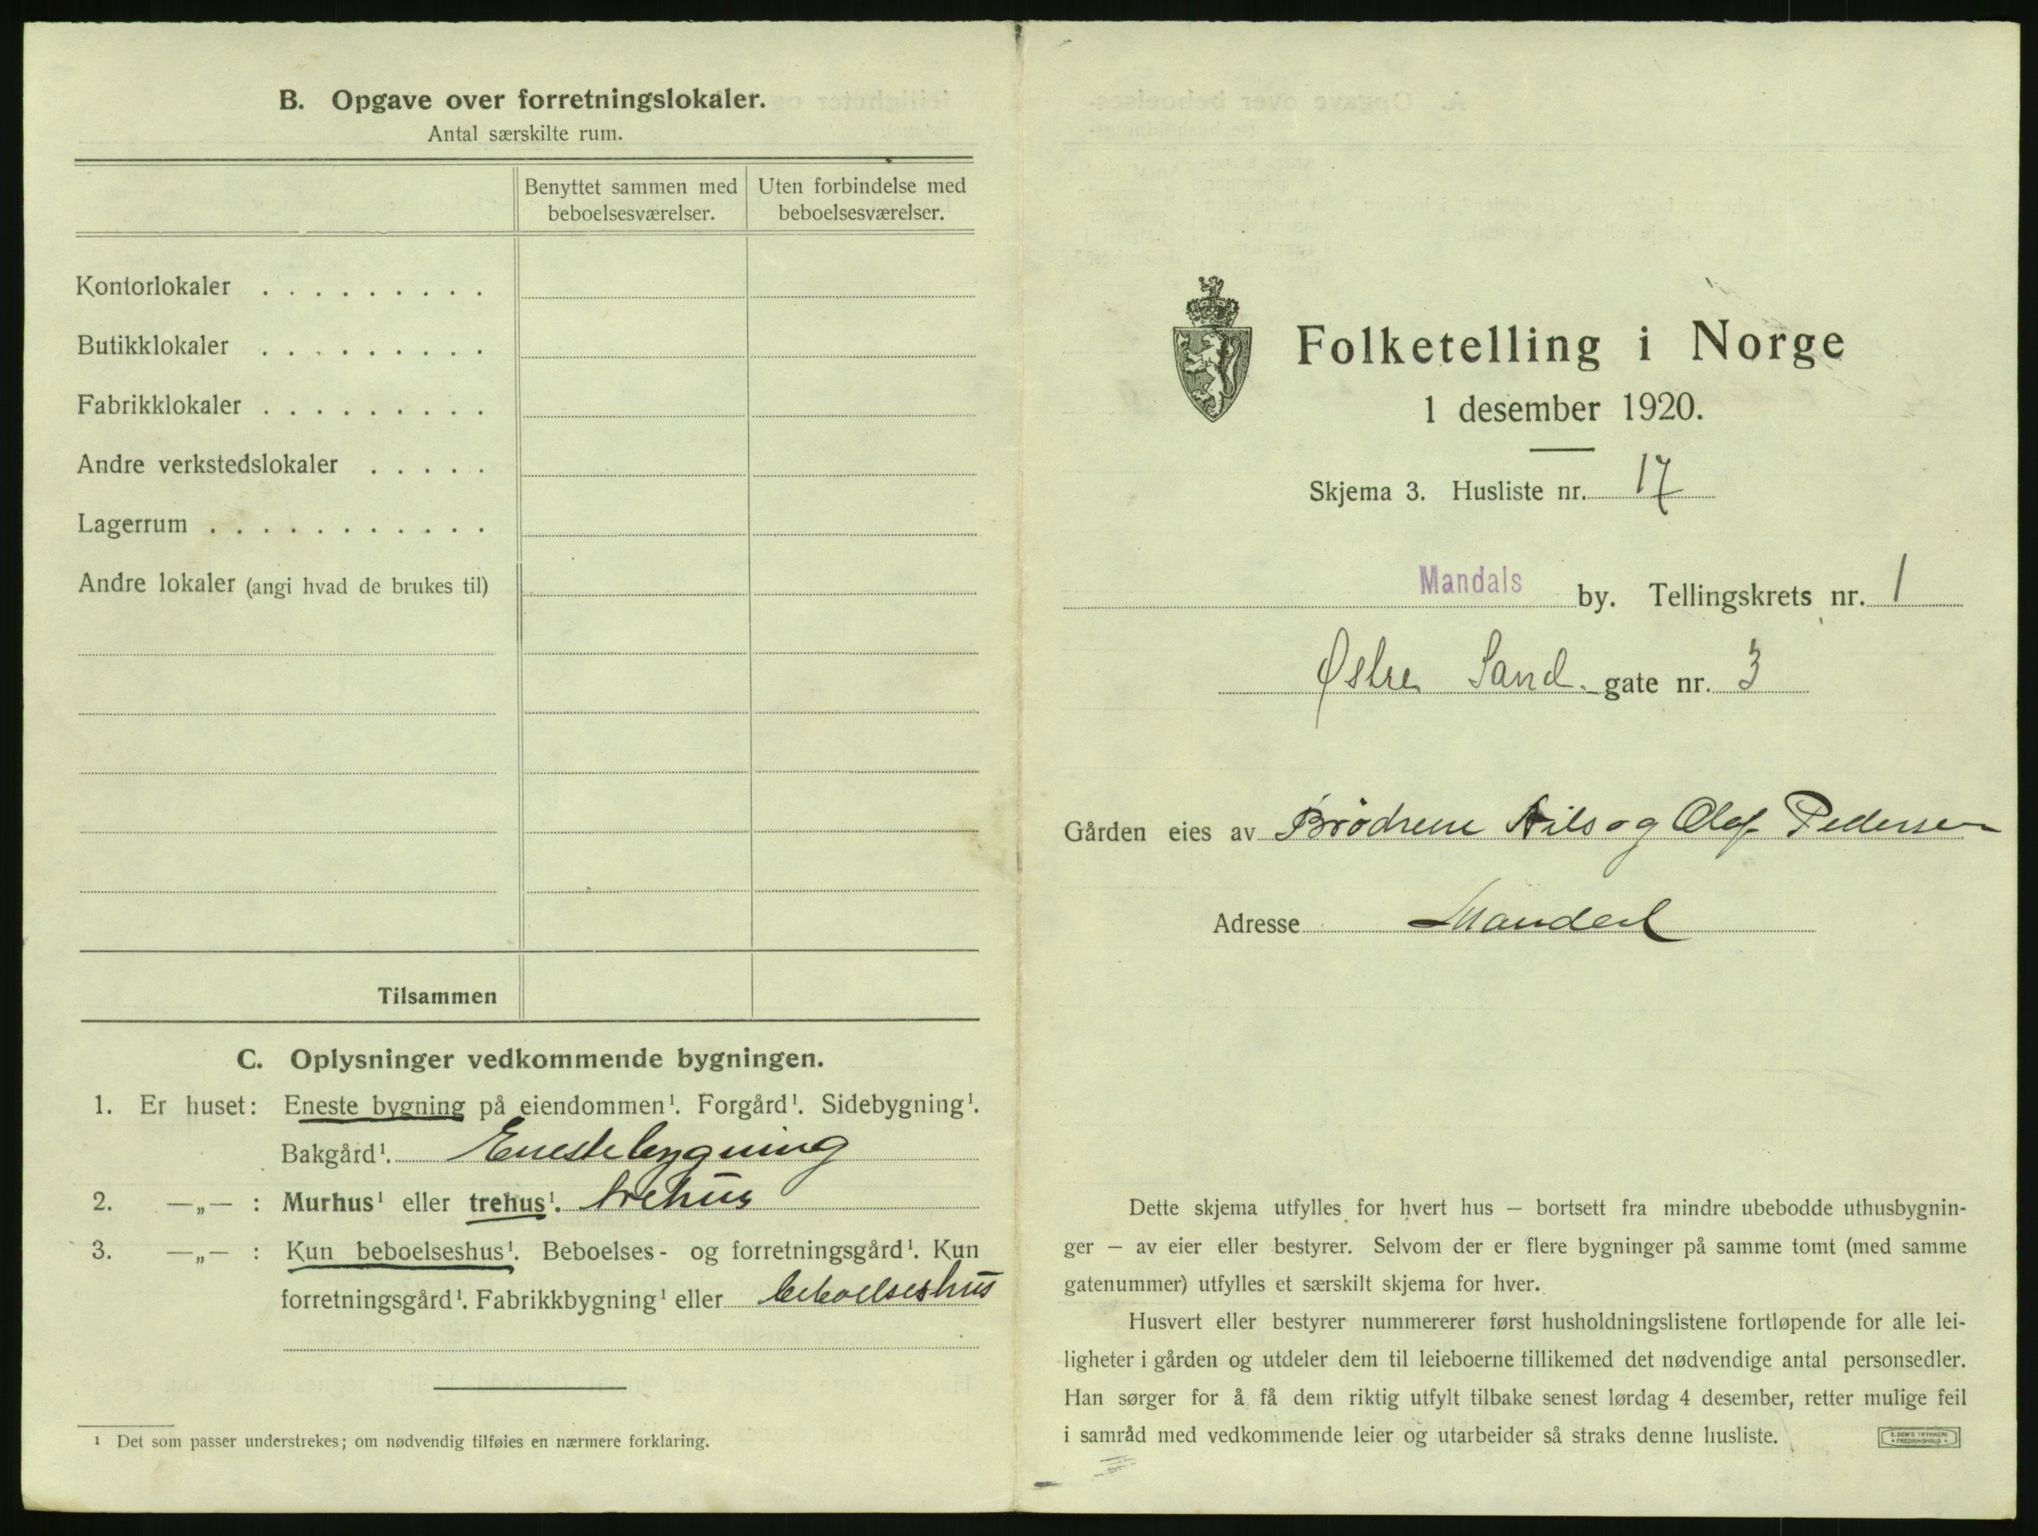 B. Opgave over forretningslokaler.
Antal særskilte rum.
Benyttet sammen med beboelsesværelser.
Uten forbindelse med beboelsesværelser.
Kontorlokaler . . . . . . . . .
Butikklokaler . . . . . . . . .
Fabrikklokaler . . . . . . . . .
Andre verkstedslokaler . . . . .
Lagerrum . . . . . . . . . . .
Andre lokaler (angi hvad de brukes til)
Tilsammen
C. Oplysninger vedkommende bygningen.
1. Er huset: Eneste bygning på eiendommen¹. Forgård¹. Sidebygning¹.
Bakgård¹. Enestebygning
2. —„— : Murhus¹ eller trehus¹. trehus
3. —„— : Kun beboelseshus¹. Beboelses- og forretningsgård¹. Kun
forretningsgård¹. Fabrikkbygning¹ eller beboelseshus
¹ Det som passer understrekes; om nødvendig tilføies en nærmere forklaring.
Folketelling i Norge
1 desember 1920.
Skjema 3. Husliste nr. 17
Mandals by. Tellingskrets nr. 1
Østre Sand. gate nr. 3
Gården eies av Brødrene Nils og Olaf Pedersen
Adresse Mandal
Dette skjema utfylles for hvert hus — bortsett fra mindre ubebodde uthusbygnin-
ger — av eier eller bestyrer. Selvom der er flere bygninger på samme tomt (med samme
gatenummer) utfylles et særskilt skjema for hver.
Husvert eller bestyrer nummererer først husholdningslistene fortløpende for alle lei-
ligheter i gården og utdeler dem til leieboerne tillikemed det nødvendige antal personsedler.
Han sørger for å få dem riktig utfylt tilbake senest lørdag 4 desember, retter mulige feil
i samråd med vedkommende leier og utarbeider så straks denne husliste.
E. SEM'S TRYKKERI
FREDRIKSHALD